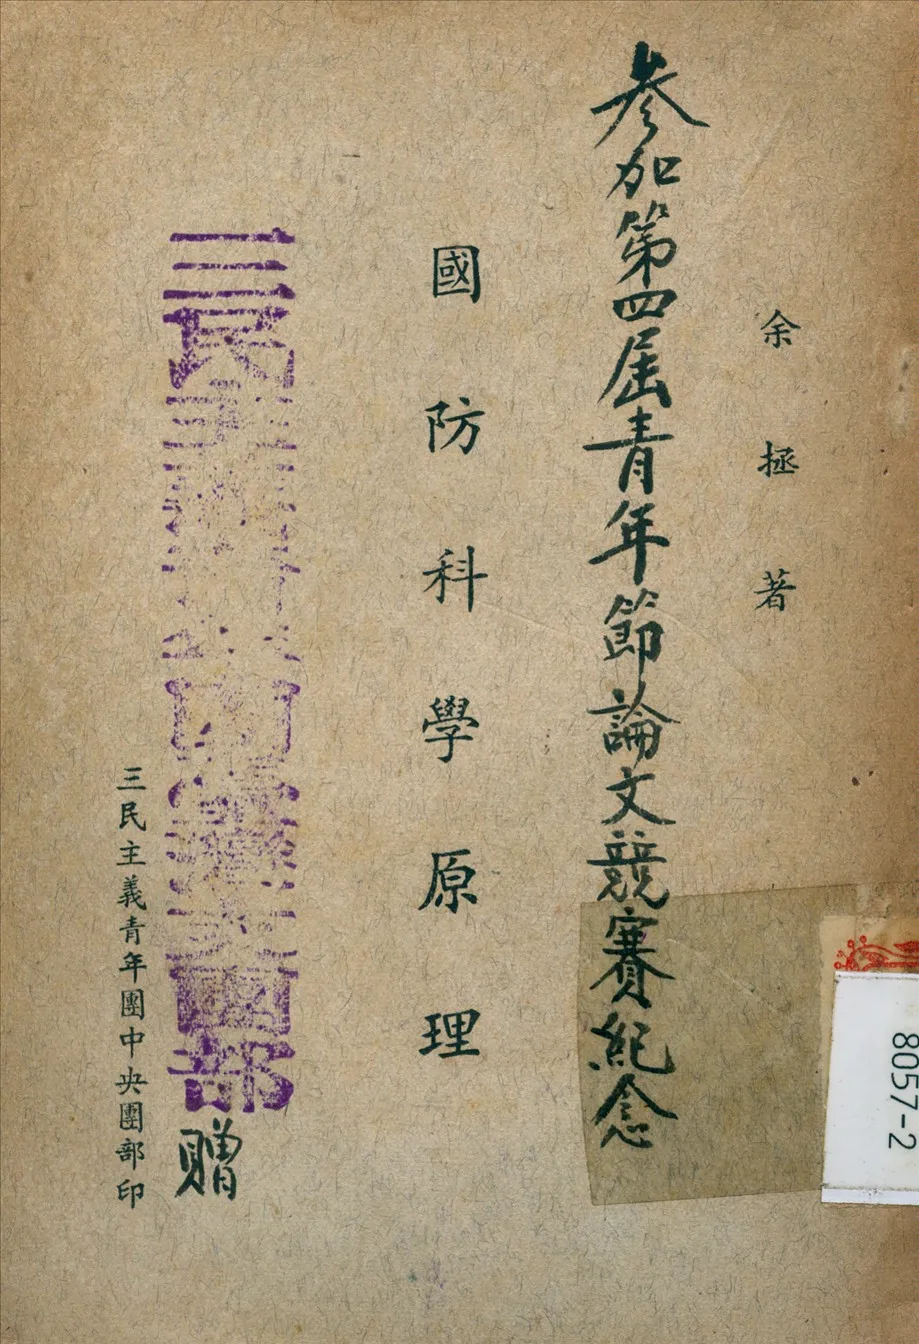 余拯著
參加第四屆青年節論文競賽紀念
國防科學原理
三民主義青年團
團部
贈
三民主義青年團中央團部印
8057-2